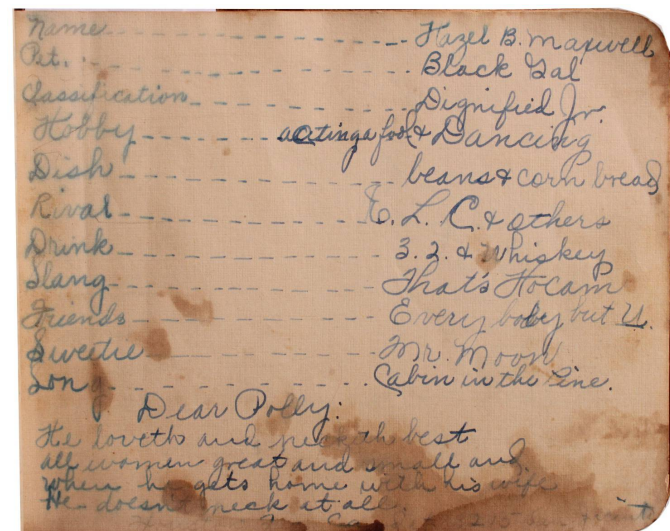 Name - - - - - - - - - - - - Hazel B. Maxwell
Pet. - - - - - - - - - - - - Black Gal
Classification - - - - - - - - Dignified Jr.
Hobby - - - - - - acting a fool & Dancing
Dish - - - - - - - - - - - - beans & corn bread
Rival - - - - - - - - - - L. C. & others
Drink - - - - - - - - - - - 3.2. & Whiskey
Slang - - - - - - - - - - - That's Hocam
Friends - - - - - - - - - - Every body but U.
Sweetie - - - - - - - - - - Mr. Moon
Song - - - - - - - - - - Cabin in the Pine.
Dear Polly:
He loveth and necketh best
all women great and small and
when he gets home with his wife
He doesn't neck at all.